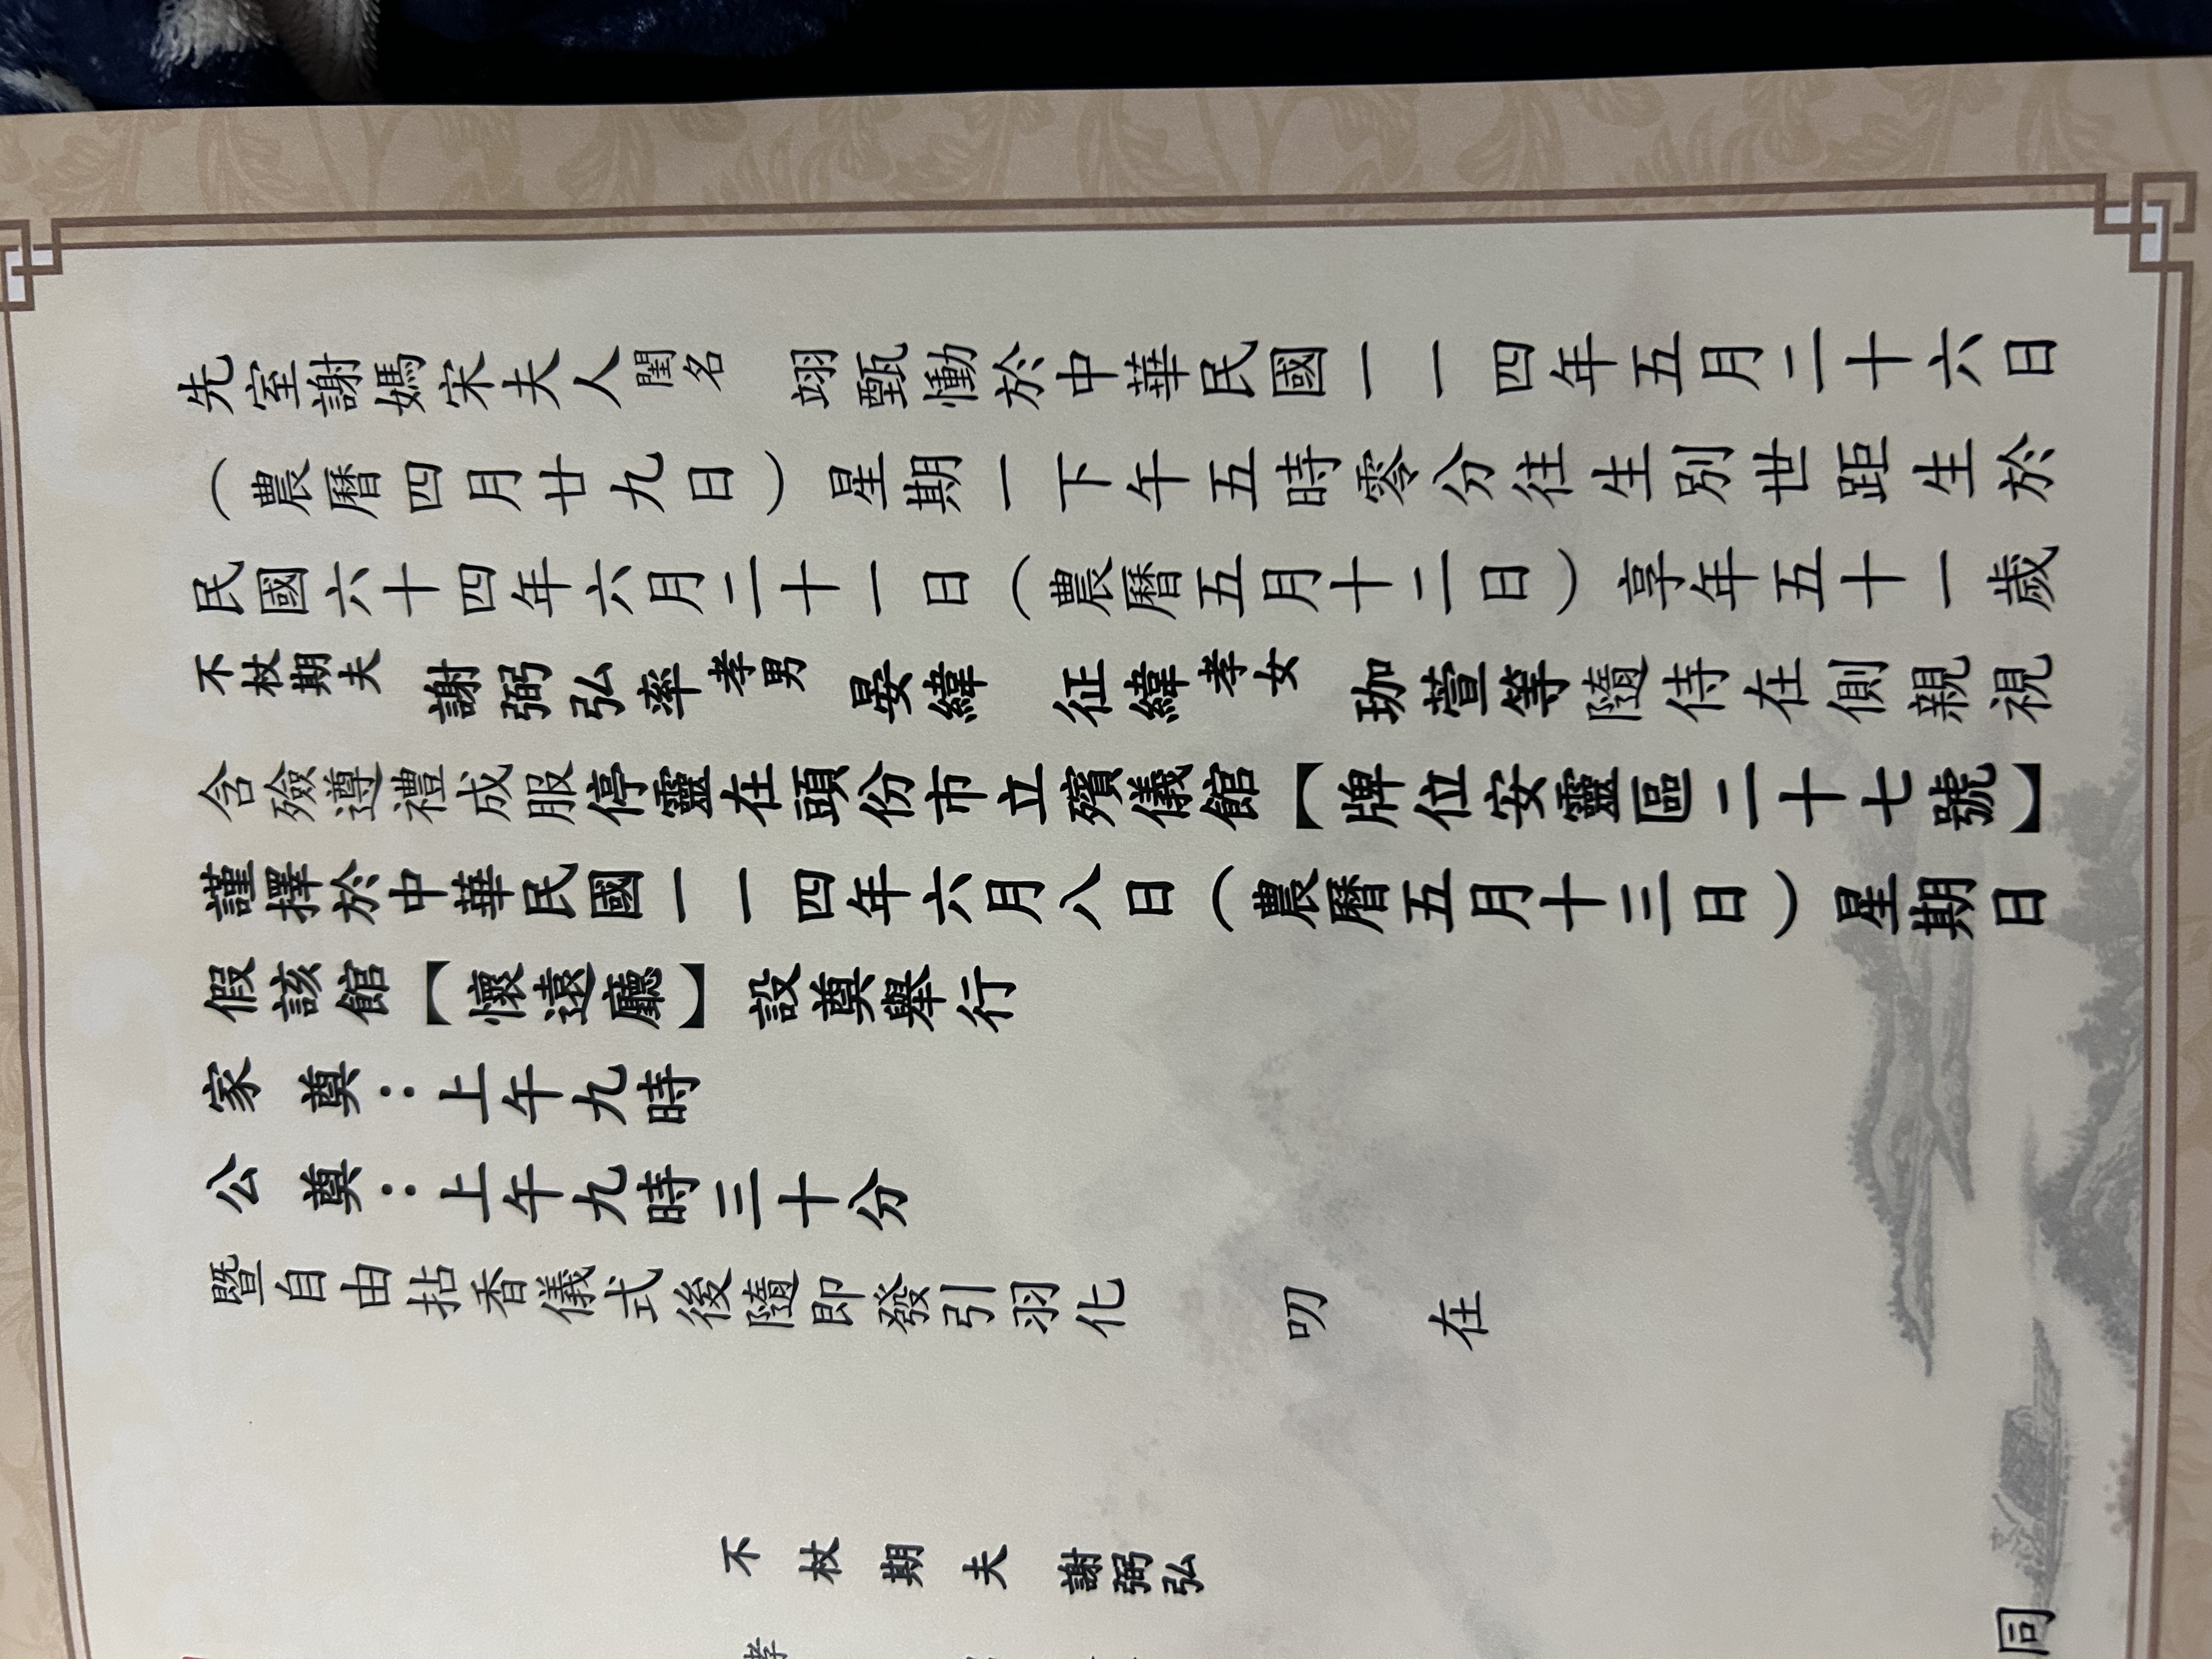 先室謝媽宋夫人閨名 翊甄慟於中華民國一一四年五月二十六日
（農曆四月廿九日）星期一下午五時零分往生別世距生於
民國六十四年六月二十一日（農曆五月十二日）享年五十一歲
不杖期夫 謝弼弘率孝男 晏緯 征緯孝女 珈萱等隨侍在側親視
含殮遵禮成服停靈在頭份市立殯儀館【牌位安靈區二十七號】
謹擇於中華民國一一四年六月八日（農曆五月十三日）星期日
假該館【懷遠廳】設奠舉行
家 奠：上午九時
公 奠：上午九時三十分
暨自由拈香儀式後隨即發引羽化 叨 在
不杖期夫 謝弼弘
孝
同